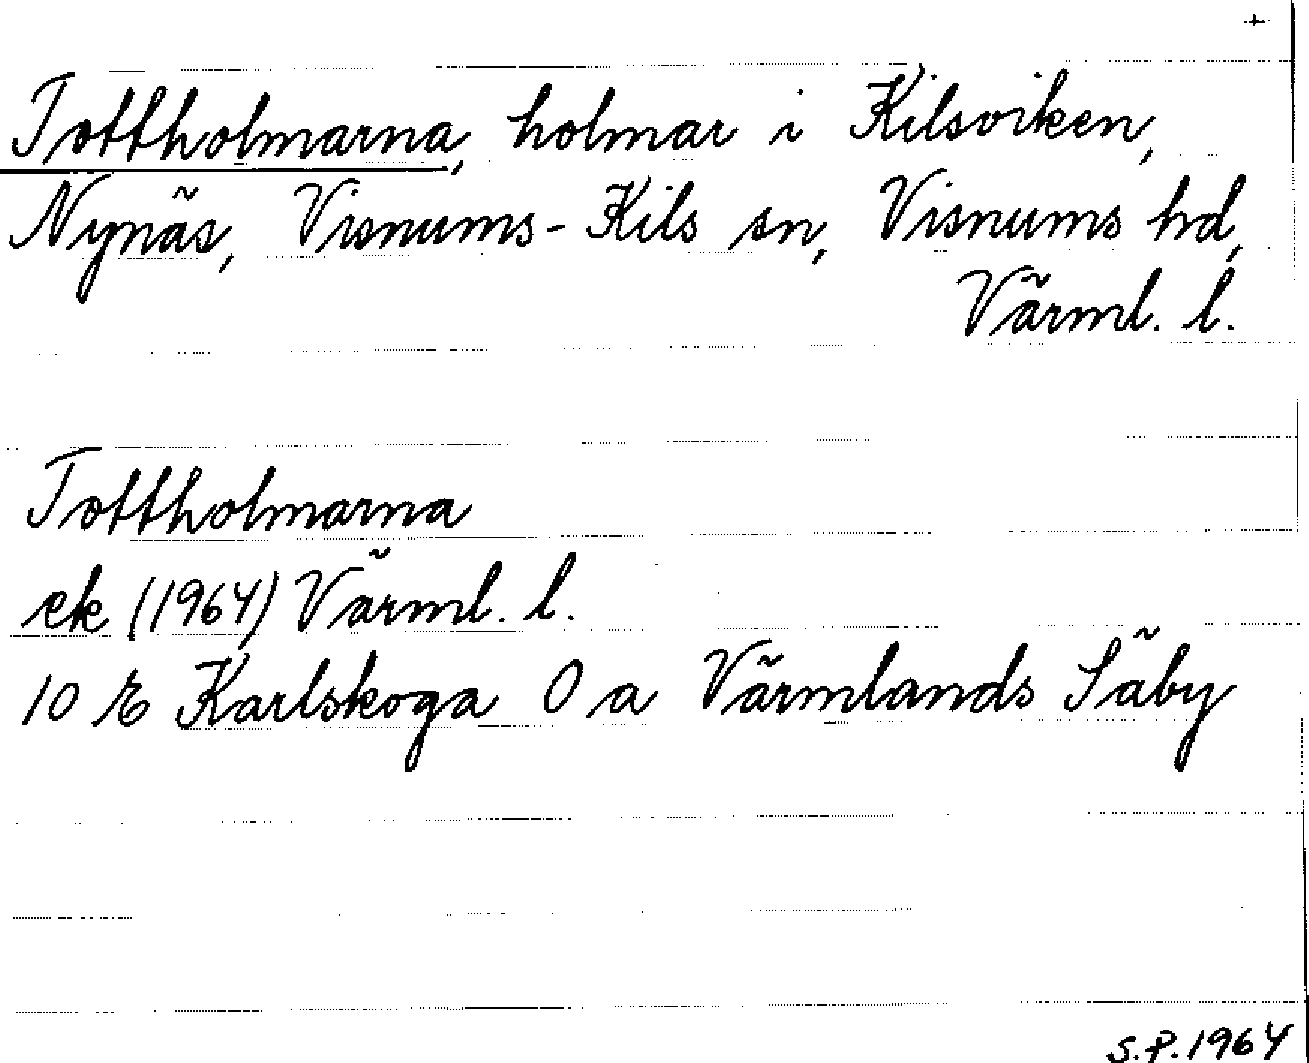 +
Tottholmarna, holmar i Kilsviken,
Nynäs, Visnums-Kils sn, Visnums hd,
Värml. l.
Tottholmarna
ek (1964) Värml. l.
10 E Karlskoga 0 a Värmlands Säby
S.P. 1964